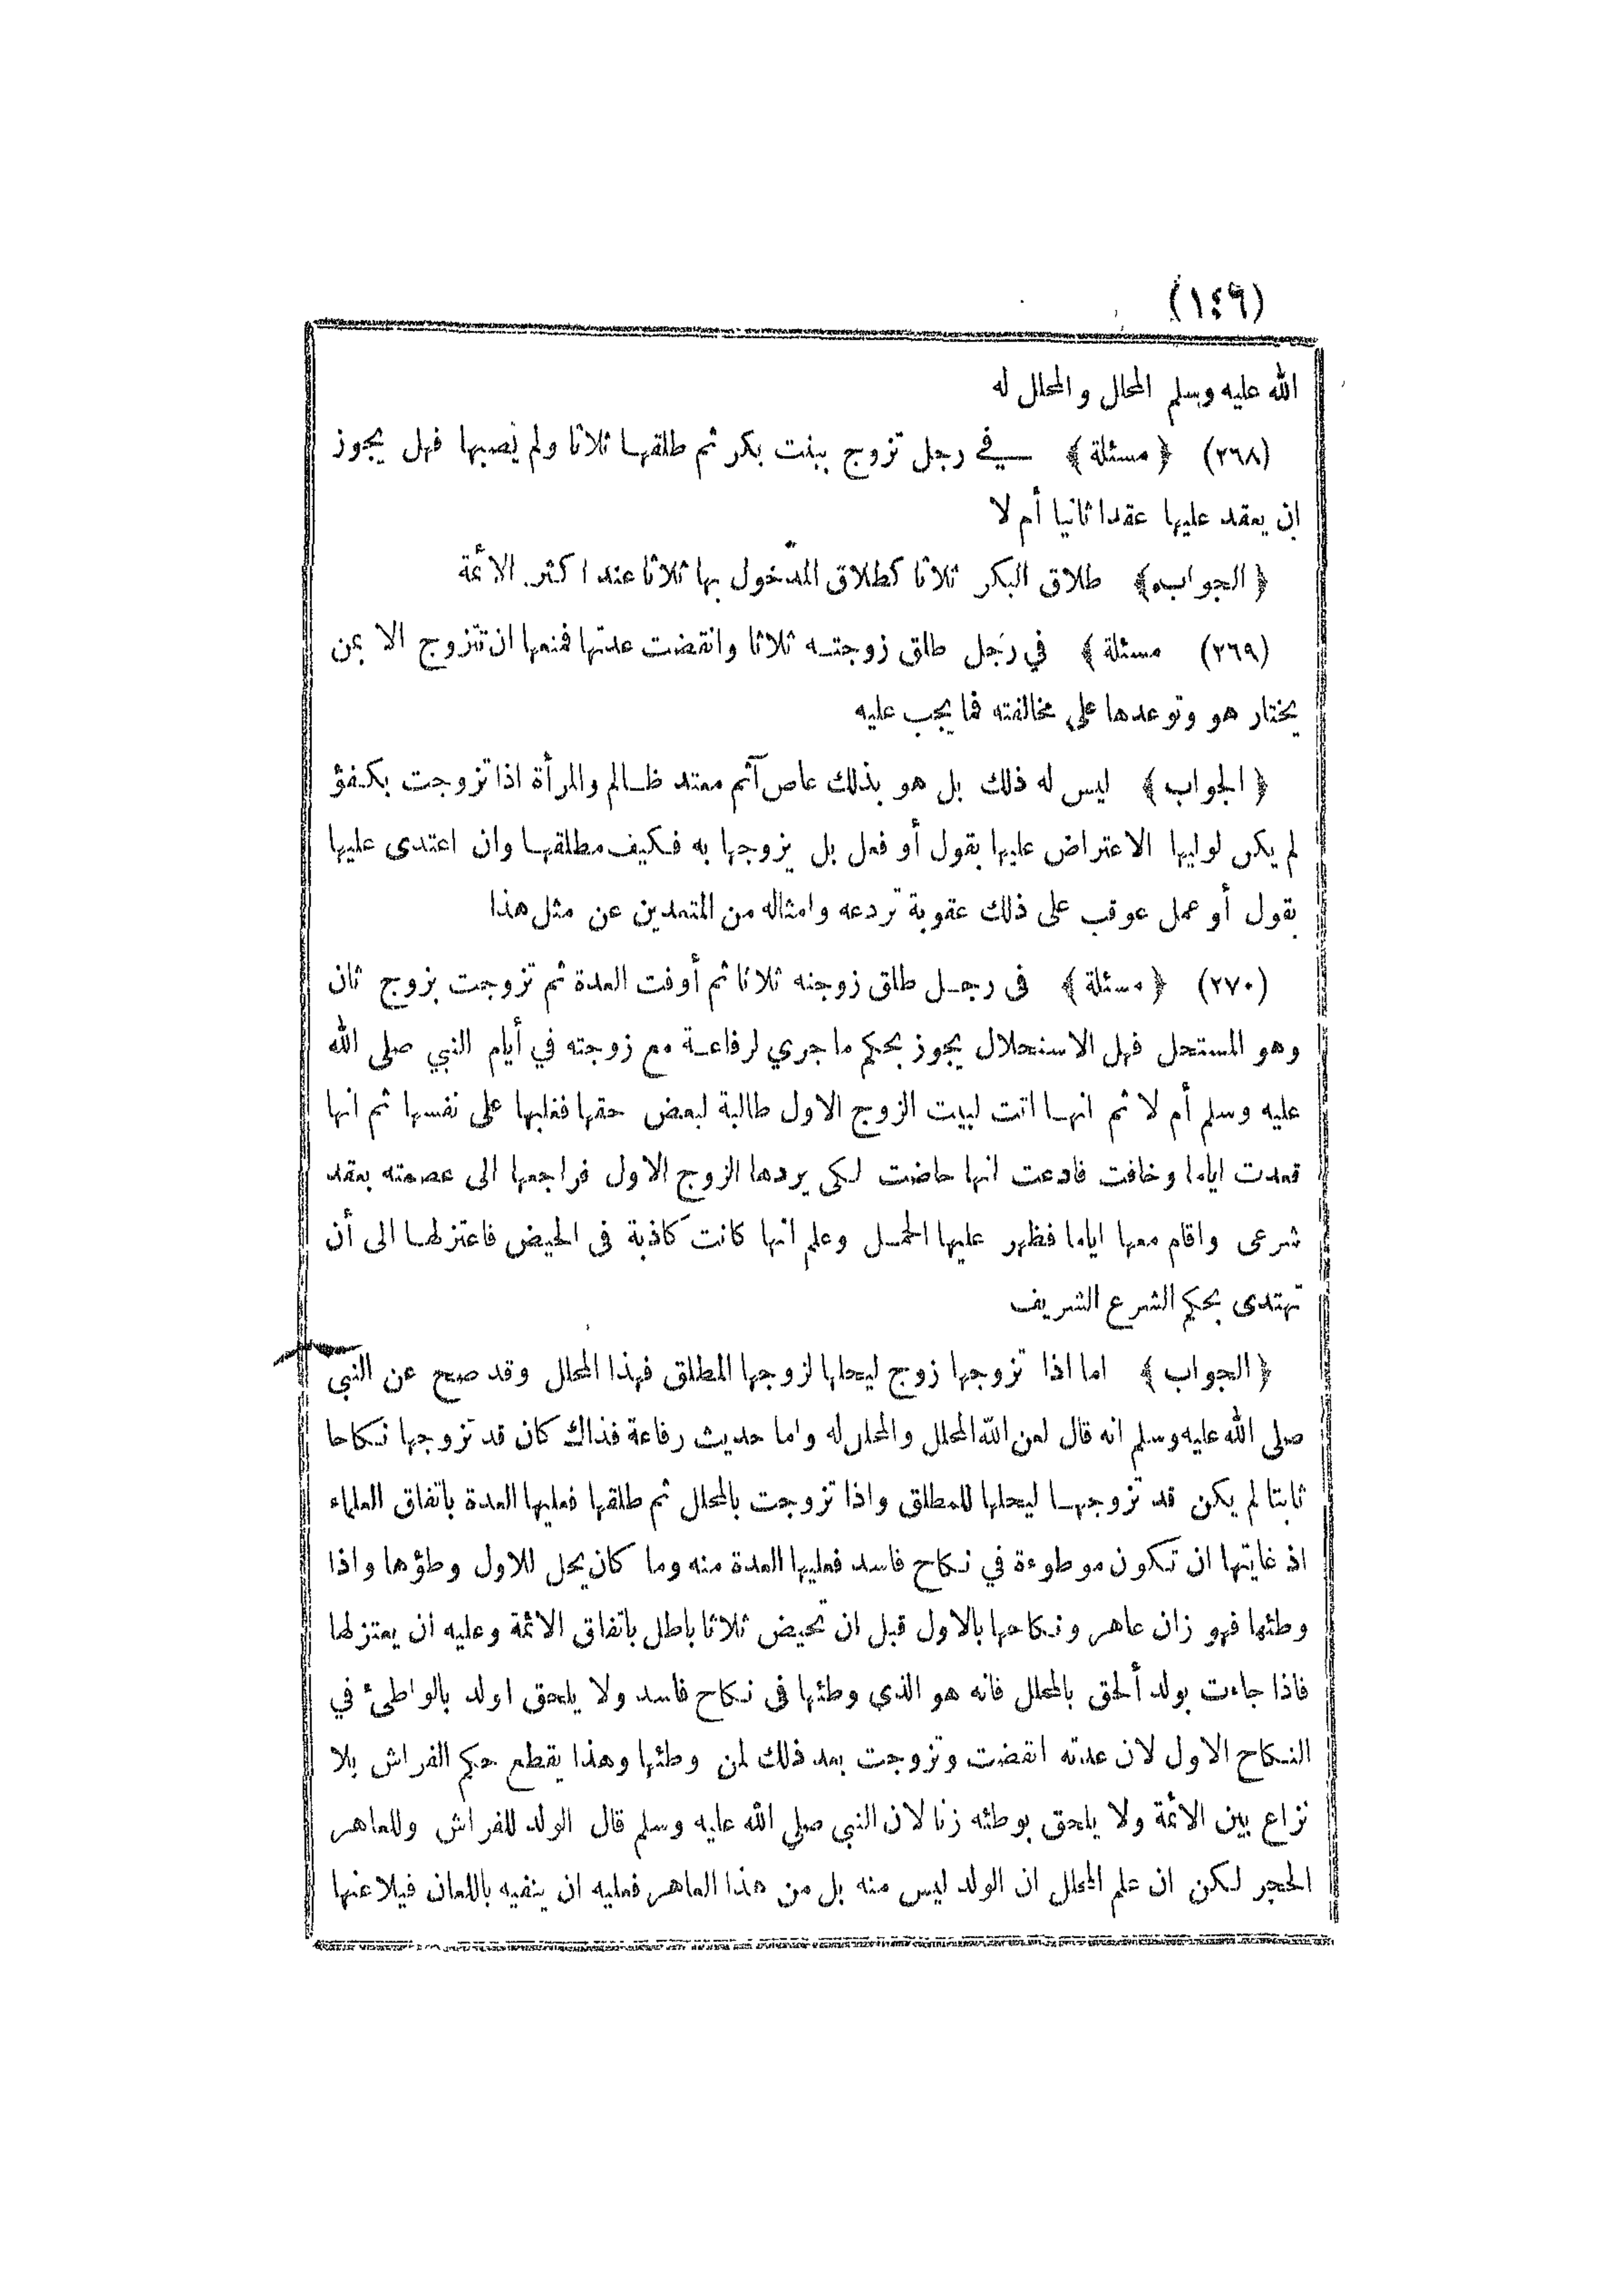 (١٤٩)
الله عليه وسلم المحلل والمحلل له
(٢٦٨) ﴿ مسئلة ﴾ في رجل تزوج ببنت بكر ثم طلقها ثلاثا ولم يصبها فهل يجوز
ان يعقد عليها عقدا ثانيا أم لا
﴿ الجواب ﴾ طلاق البكر ثلاثا كطلاق المدخول بها ثلاثا عند اكثر الائمة
(٢٦٩) مسئلة ﴾ في رجل طلق زوجته ثلاثا وانقضت عدتها فمنعها ان تتزوج الا بمن
يختار هو وتوعدها على مخالفته فما يجب عليه
﴿ الجواب ﴾ ليس له ذلك بل هو بذلك عاص آثم معتد ظالم والمرأة اذا تزوجت بكفؤ
لم يكن لوليها الاعتراض عليها بقول أو فعل بل يزوجها به فكيف مطلقها وان اعتدى عليها
بقول أو عمل عوقب على ذلك عقوبة تردعه وامثاله من المتعدين عن مثل هذا
(٢٧٠) ﴿ مسئلة ﴾ فى رجل طلق زوجته ثلاثا ثم أوفت العدة ثم تزوجت بزوج ثان
وهو المستحل فهل الاستحلال يجوز بحكم ما جري لرفاعة مع زوجته في أيام النبي صلى الله
عليه وسلم أم لا ثم انها اتت لبيت الزوج الاول طالبة لبعض حقها فغلبها على نفسها ثم انها
قعدت اياما وخافت فادعت انها حاضت لكى يردها الزوج الاول فراجعها الى عصمته بعقد
شرعى واقام معها اياما فظهر عليها الحمل وعلم انها كانت كاذبة فى الحيض فاعتزلها الى أن
تهتدى بحكم الشرع الشريف
﴿ الجواب ﴾ اما اذا تزوجها زوج ليحلها لزوجها المطلق فهذا المحلل وقد صح عن النبي
صلى الله عليه وسلم انه قال لعن الله المحلل والمحلل له واما حديث رفاعة فذاك كان قد تزوجها نكاحا
ثابتا لم يكن قد تزوجها ليحلها للمطلق واذا تزوجت بالمحلل ثم طلقها فعليها العدة باتفاق العلماء
اذ غايتها ان تكون موطوءة في نكاح فاسد فعليها العدة منه وما كان يحل للاول وطؤها واذا
وطئها فهو زان عاهر ونكاحها بالاول قبل ان تحيض ثلاثا باطل باتفاق الائمة وعليه ان يعتزلها
فاذا جاءت بولد ألحق بالمحلل فانه هو الذي وطئها فى نكاح فاسد ولا يلحق اولد بالواطئ في
النكاح الاول لان عدته انقضت وتزوجت بعد ذلك لمن وطئها وهذا يقطع حكم الفراش بلا
نزاع بين الائمة ولا يلحق بوطئه زنا لان النبي صلى الله عليه وسلم قال الولد للفراش وللعاهر
الحجر لكن ان علم المحلل ان الولد ليس منه بل من هذا العاهر فعليه ان ينفيه باللعان فيلاعنها